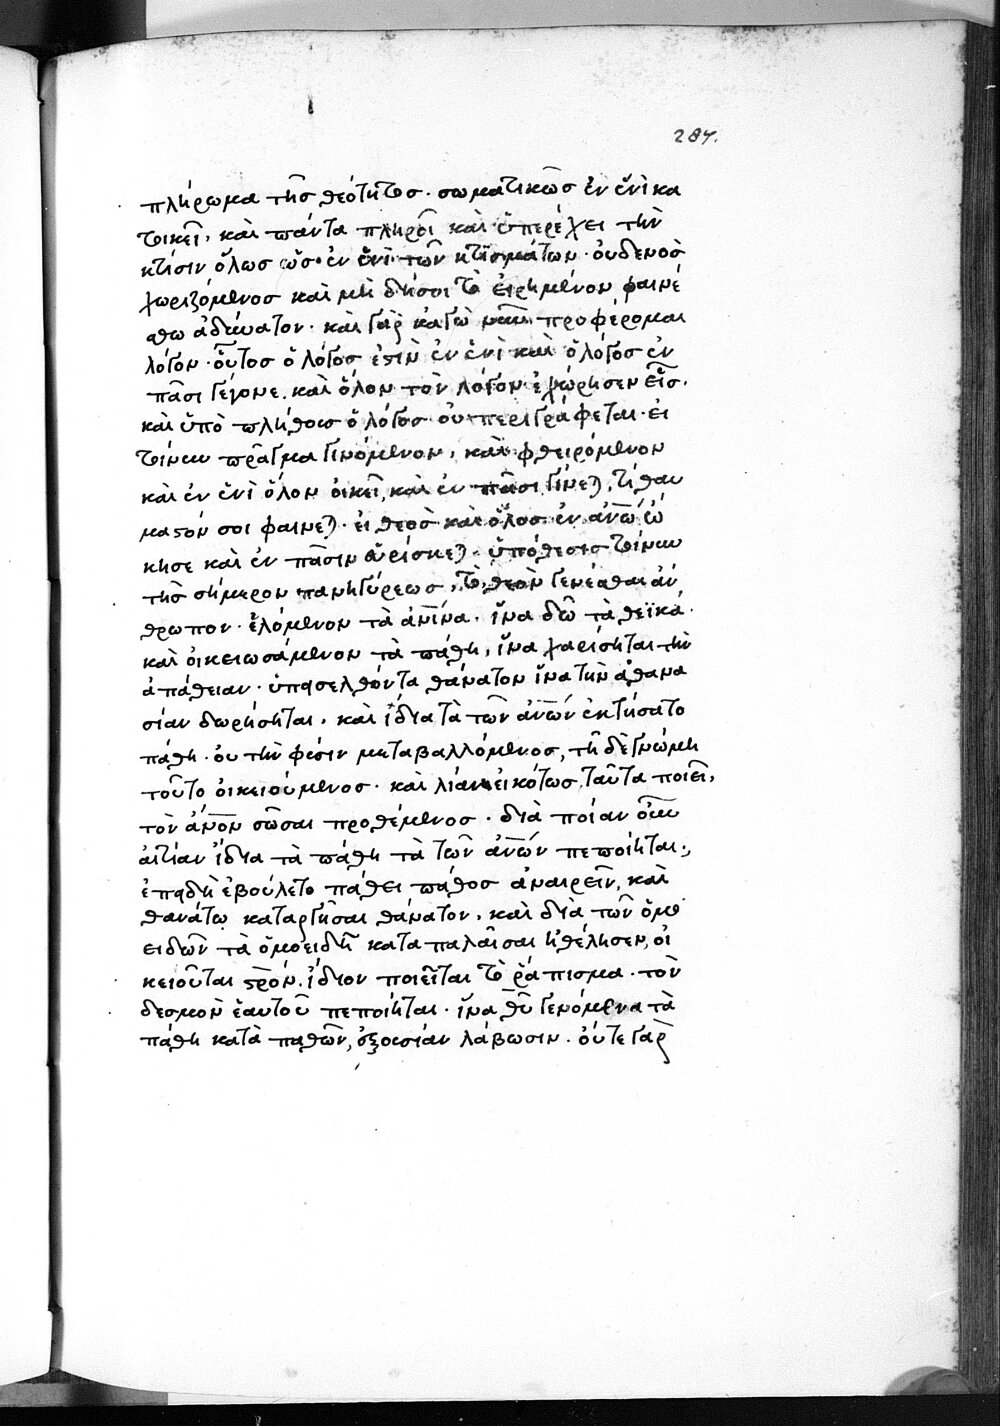 287.
πλήρωμα τῆς θεότητος· σωματικῶς ἐν ἑνὶ κα
τοικεῖ, καὶ πάντα πληροῖ καὶ ὑπερέχει τὴν
κτίσιν ὅλως ὡς ἐν ἑνὶ τῶν κτισμάτων· οὐδενὸς
χωριζόμενος καὶ μὴ δήσοι τὸ εἰρημένον φαινέ
σθω ἀδύνατον· καὶ γὰρ κἀγὼ προφέρομαι
λόγον· οὗτος ὁ λόγος ἐστὶν ἐν ἑνὶ καὶ ὁ λόγος ἐν
πᾶσι γέγονε. καὶ ὅλον τὸν λόγον ἐχώρησεν εἷς.
καὶ ὑπὸ πλήθους ὁ λόγος οὐ περιγράφεται· εἰ
τοίνυν πρᾶγμα γινόμενον, καὶ φθειρόμενον
καὶ ἐν ἑνὶ ὅλον οἰκεῖ, καὶ ἐν πᾶσι γίνεται, τί θαυ
μαστόν σοι φαινεται· εἰ θεὸς καὶ ὅλος ἐν ἀνω ὤ
κησε καὶ ἐν πᾶσιν εὑρίσκεται· ὑπόθεσις τοίνυν
τῆς σήμερον πανηγύρεως, τὸ θεὸν γενέσθαι ἀν
θρωπον· ἑλόμενον τὰ ἀνινα· ἵνα δῶ τὰ θεϊκά·
καὶ οἰκειωσάμενον τὰ πάθη, ἵνα χαρίσηται τὴν
ἀπάθειαν· ὑπεισελθόντα θάνατον ἵνα τὴν ἀθανα
σίαν δωρήσηται. καὶ ἴδια τὰ τῶν ἀνων ἐκτήσατο
πάθη· οὐ τὴν φύσιν μεταβαλλόμενος, τῇ δὲ γνώμῃ
τοῦτο οἰκειούμενος· καὶ λίαν εἰκότως ταῦτα ποιεῖ,
τὸν ἀνον σῶσαι προθέμενος· διὰ ποίαν οὖν
αἰτίαν ἴδια τὰ πάθη τὰ τῶν ἀνων πεποίηται;
ἐπειδὴ ἐβούλετο πάθει πάθος ἀναιρεῖν, καὶ
θανάτω καταργῆσαι θάνατον, καὶ διὰ τῶν ὁμο
ειδῶν τὰ ὁμοειδῆ καταπαλαῖσαι ἠθέλησεν, οἰ
κειοῦται στρον. ἴδιον ποιεῖται τὸ ῥάπισμα· τὸν
δεσμὸν ἑαυτοῦ πεποίηται· ἵνα θυ γενόμενα τὰ
πάθη κατὰ παθῶν, ἐξουσίαν λάβωσιν· οὔτε γὰρ